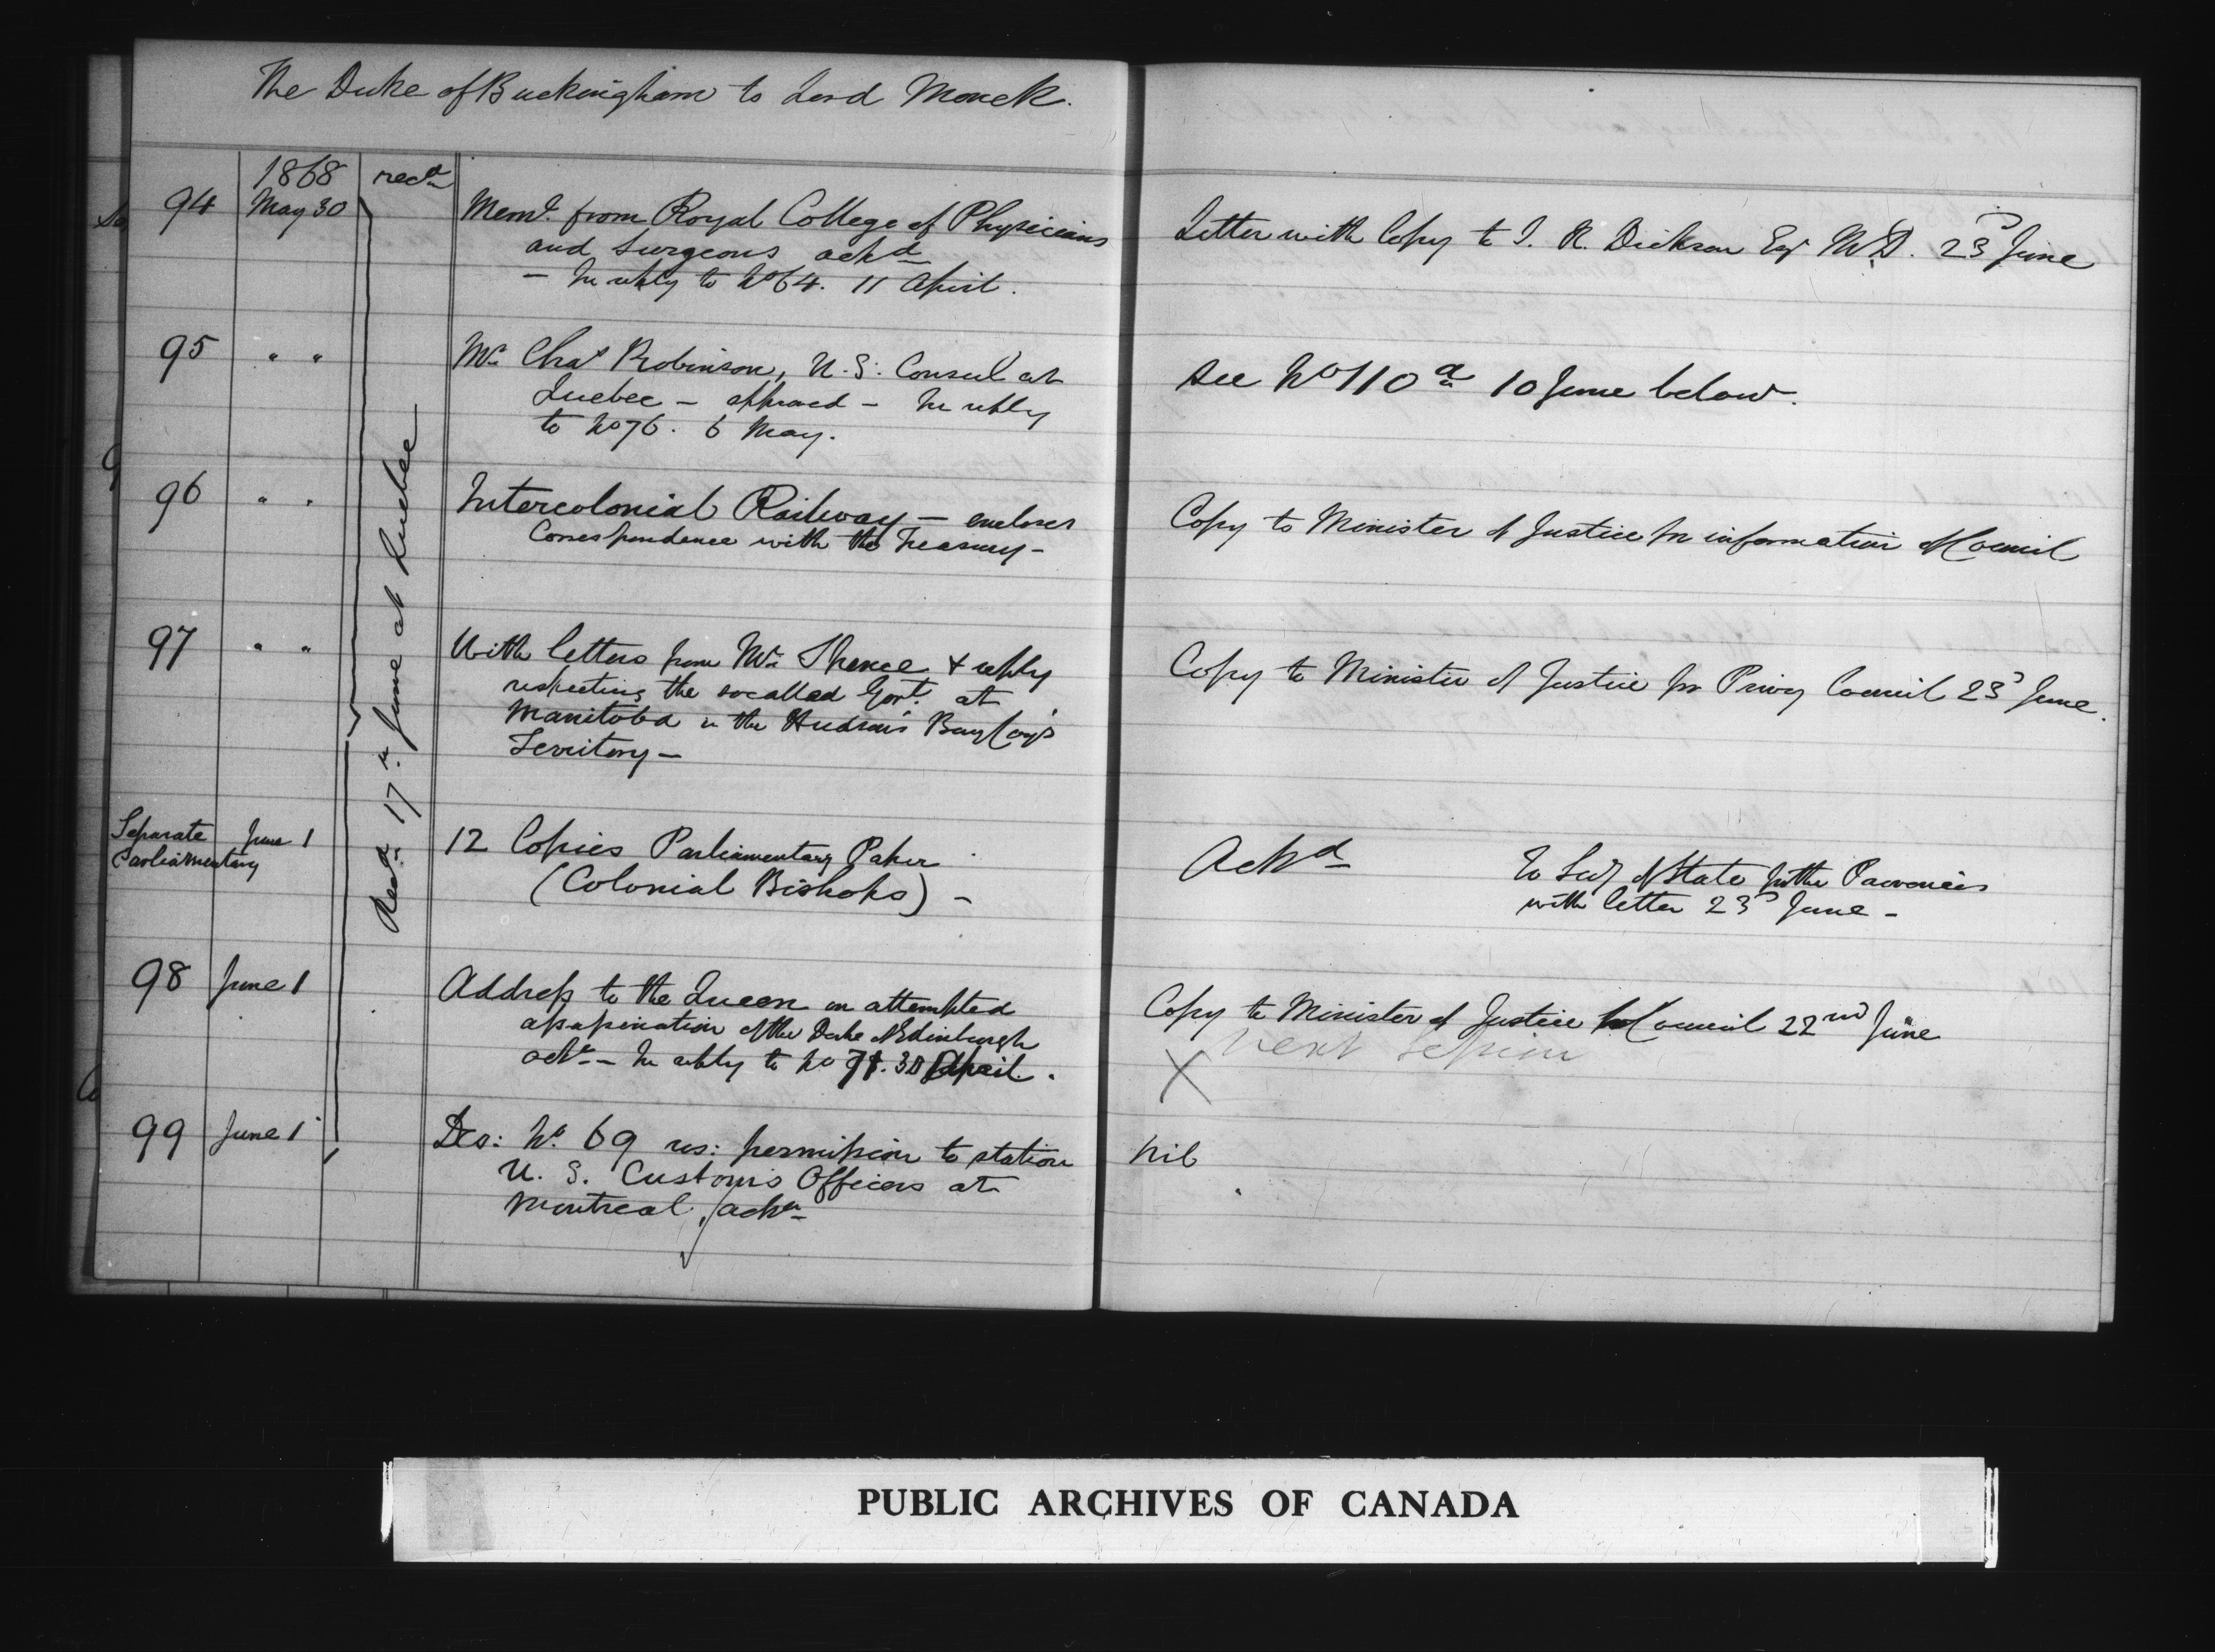 The Duke of Buckingham to Lord Monck.
1868 recd
94 May 30 Meml. from Royal College of Physicians
and Surgeons ackd
— In reply to No 64. 11 April.
Letter with Copy to J. R. Dickson Esqr M.D. 23d June
95 " " Mr. Chas Robinson, U.S. Consul at
Quebec — approved — In reply
to No 76. 6 May.
See No 110a 10 June below.
96 " " Intercolonial Railway — encloses
Correspondence with the Treasury —
Copy to Minister of Justice for information of Council
97 " " With letters from Mr. Spence & reply
respecting the socalled Govt. at
Manitoba in the Hudson's Bay Coy's
Territory —
Copy to Minister of Justice for Privy Council 23d June.
Recd. 17th June at Quebec
Separate June 1 12 Copies Parliamentary Paper
Parliamentary (Colonial Bishops) —
Ackd
To Secy of State for the Provinces
with letter 23d June —
98 June 1 Address to the Queen on attempted
assassination of the Duke of Edinburgh
ackd — In reply to No 71. 30 April.
Copy to Minister of Justice for Council 22nd June
X Next Session
99 June 1 Des: No. 69 res: permission to station
U.S. Customs Officers at
Montreal, ackd
nil
PUBLIC ARCHIVES OF CANADA